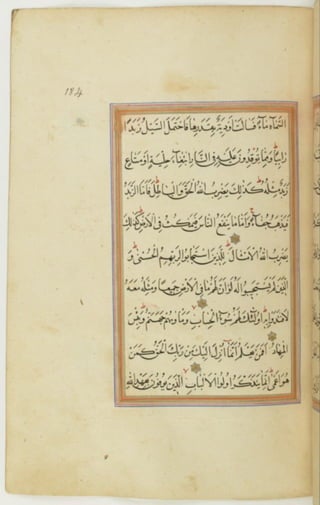 184
السَّمَاءِ مَاءً فَسَالَتْ اَوْدِيَةٌ بِقَدَرِهَا فَاحْتَمَلَ السَّيْلُ زَبَدًا
رَابِيًا وَمِمَّا يُوقِدُونَ عَلَيْهِ فِي النَّارِ ابْتِغَاءَ حِلْيَةٍ اَوْ مَتَاعٍ
زَبَدٌ مِثْلُهُ كَذٰلِكَ يَضْرِبُ اللهُ الْحَقَّ وَالْبَاطِلَ فَاَمَّا الزَّبَدُ
فَيَذْهَبُ جُفَاءً وَاَمَّا مَا يَنْفَعُ النَّاسَ فَيَمْكُثُ فِي الْاَرْضِ كَذٰلِكَ
يَضْرِبُ اللهُ الْاَمْثَالَ لِلَّذِينَ اسْتَجَابُوا لِرَبِّهِمُ الْحُسْنٰى وَ
الَّذِينَ لَمْ يَسْتَجِيبُوا لَهُ لَوْ اَنَّ لَهُمْ مَا فِي الْاَرْضِ جَمِيعًا وَمِثْلَهُ مَعَهُ
لَافْتَدَوْا بِهِ اُولٰئِكَ لَهُمْ سُوءُ الْحِسَابِ وَمَاْوٰيهُمْ جَهَنَّمُ وَبِئْسَ
الْمِهَادُ اَفَمَنْ يَعْلَمُ اَنَّمَا اُنْزِلَ اِلَيْكَ مِنْ رَبِّكَ الْحَقُّ كَمَنْ
هُوَ اَعْمٰى اِنَّمَا يَتَذَكَّرُ اُولُوا الْاَلْبَابِ الَّذِينَ يُوفُونَ بِعَهْدِ اللهِ